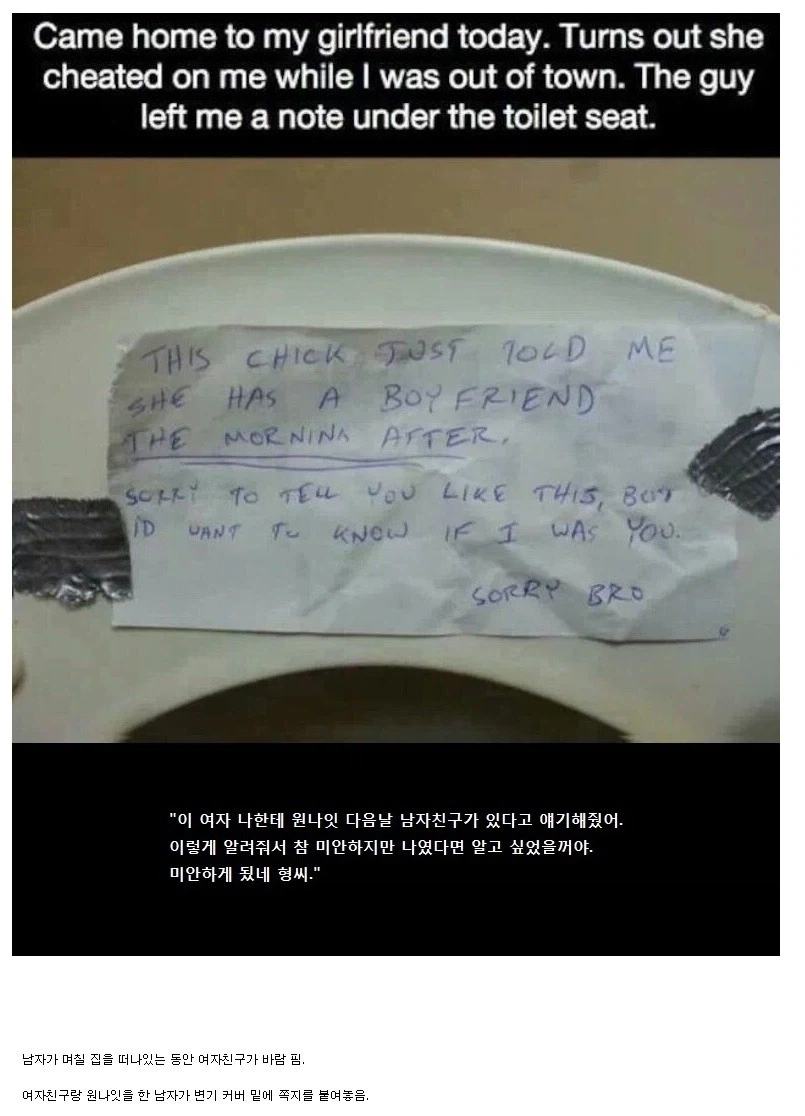 Came home to my girlfriend today. Turns out she
cheated on me while I was out of town. The guy
left me a note under the toilet seat.
THIS CHICK JUST TOLD ME
SHE HAS A BOYFRIEND
THE MORNING AFTER.
SORRY TO TELL YOU LIKE THIS, BUT
I'D WANT TO KNOW IF I WAS YOU.
SORRY BRO
"이 여자 나한테 원나잇 다음날 남자친구가 있다고 얘기해줬어.
이렇게 알려줘서 참 미안하지만 나였다면 알고 싶었을꺼야.
미안하게 됐네 형씨."
남자가 며칠 집을 떠나있는 동안 여자친구가 바람 핌.
여자친구랑 원나잇을 한 남자가 변기 커버 밑에 쪽지를 붙여놓음.